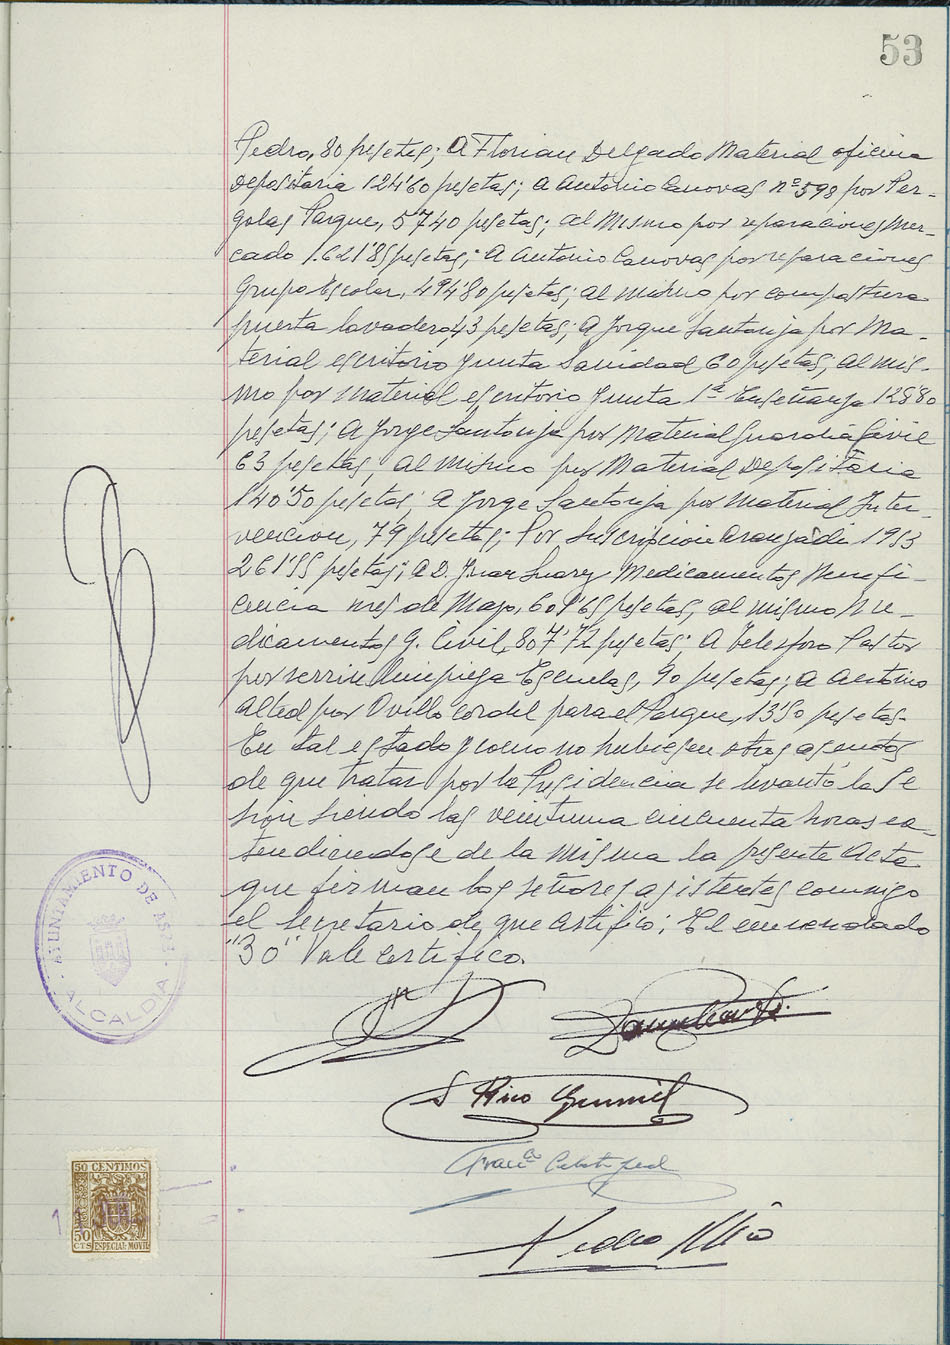 53
Pedro, 80 pesetas; A Florian Delgado Material oficina
Depositaria 124'60 pesetas; a Antonio Canovas nº 598 por Per-
golas Parque, 5740 pesetas; al mismo por reparaciones Mer-
cado 1.621'85 pesetas; A Antonio Canovas por reparaciones
Grupo Escolar, 494'80 pesetas; al mismo por compostura
puerta lavadero, 43 pesetas; A Jorque Santonja por Ma-
terial escritorio Junta Sanidad 60 pesetas; al mis-
mo por material escritorio Junta 1ª Enseñanza 128'80
pesetas; A Jorge Santonja por Material Guardia Civil
63 pesetas, al mismo por Material Depositaria
140'50 pesetas; A Jorge Santonja por Material Inter-
vencion, 79 pesetas; Por suscripcion Aranzadi 1953
261'55 pesetas; a D. Juan Suarez Medicamentos Benefi-
cencia mes de Mayo, 601'65 pesetas, al mismo Me-
dicamentos G. Civil, 807'72 pesetas; A Telesforo Pastor
por servicio limpieza Escuelas, 90 pesetas; a Antonio
Alted por Ovillo cordel para el Parque, 13'50 pesetas.
En tal estado y como no hubiesen otros asuntos
de que tratar por la Presidencia se levantó la Se
sion siendo las veintiuna cincuenta horas ex-
tendiendose de la misma la presente Acta
que firman los señores asistentes conmigo
el secretario de que certifico. El enmendado
"30" Vale certifico.
S Rico Gumiel
Pedro
AYUNTAMIENTO DE ASPE
ALCALDIA
50 CENTIMOS
50
CTS ESPECIAL MOVIL